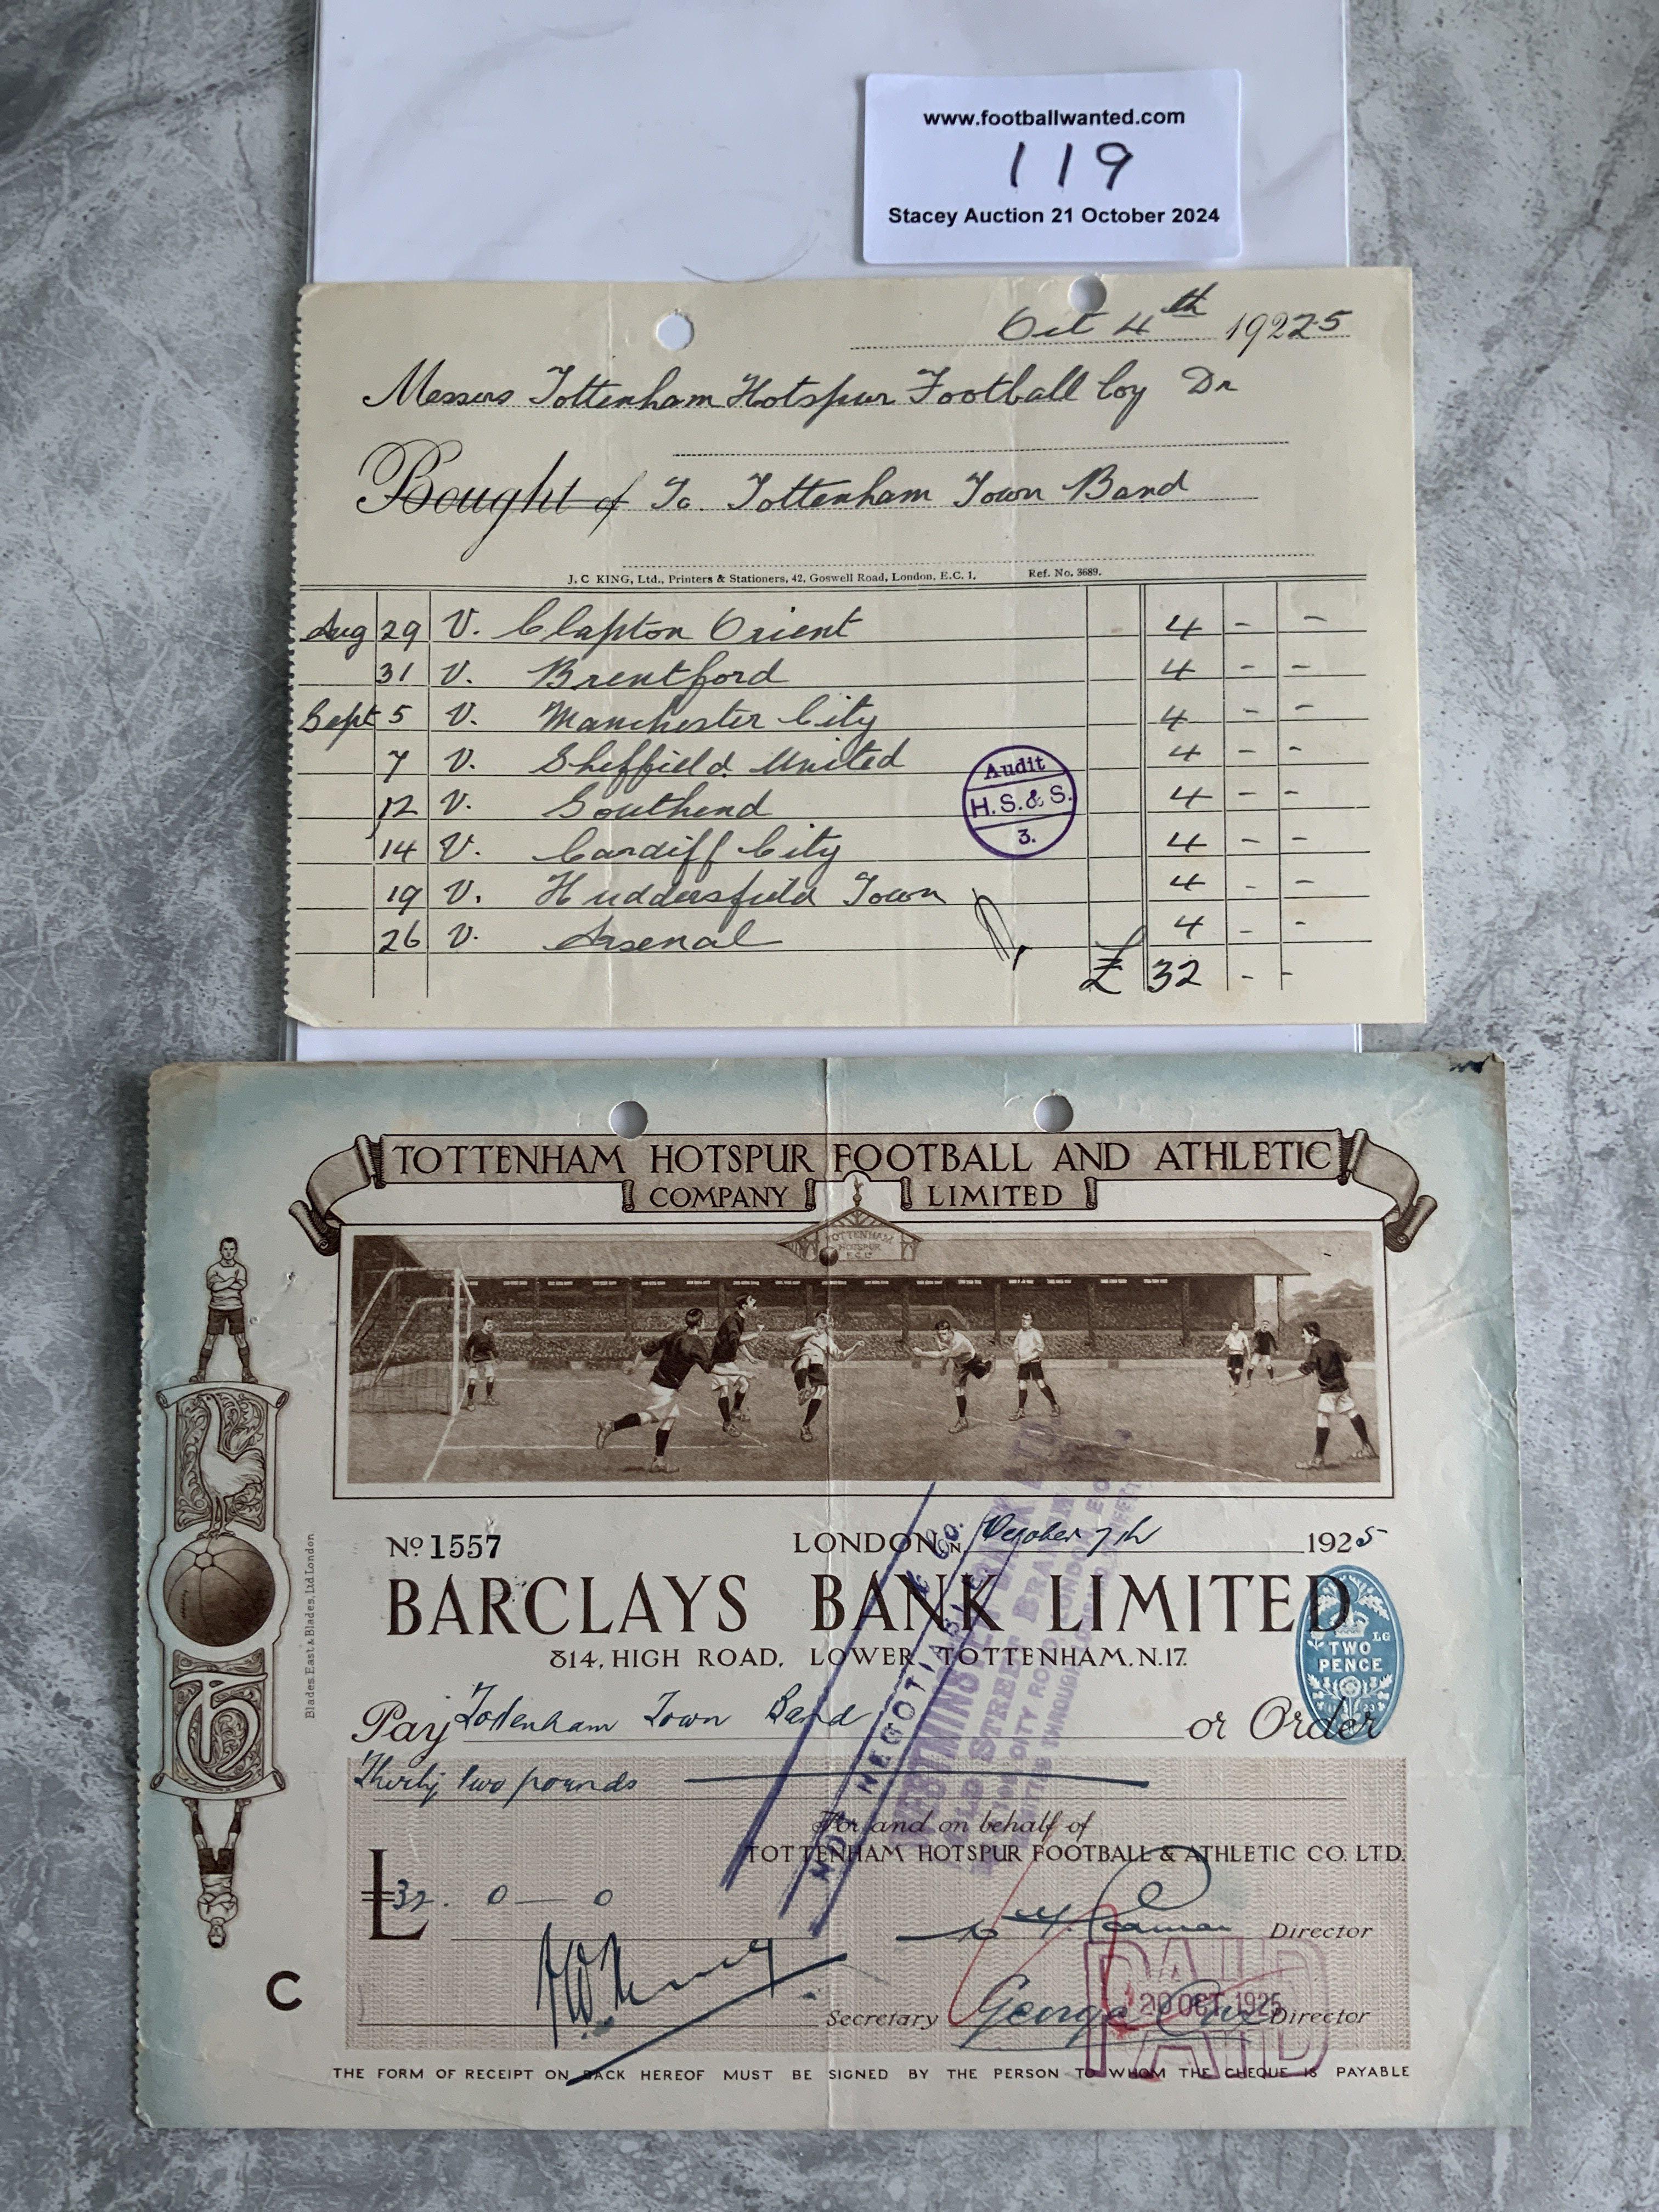 www.footballwanted.com
119
Stacey Auction 21 October 2024
Oct 4th 19225
Messers Tottenham Hotspur Football Coy Dr
Bought of To. Tottenham Town Band
J. C KING, Ltd., Printers & Stationers, 42, Goswell Road, London, E.C. 1. Ref. No. 3689.
Aug 29 V. Clapton Orient 4 - -
31 V. Brentford 4 - -
Sept 5 V. Manchester City 4 - -
7 V. Sheffield United 4 - -
12 V. Southend 4 - -
14 V. Cardiff City 4 - -
19 V. Huddersfield Town 4 - -
26 V. Arsenal 4 - -
£ 32 - -
Audit
H. S. & S.
3.
TOTTENHAM HOTSPUR FOOTBALL AND ATHLETIC
COMPANY LIMITED
TOTTENHAM
HOTSPUR
F.C. Ld
No 1557 LONDON, N. October 7th 1925
BARCLAYS BANK LIMITED
814, HIGH ROAD, LOWER TOTTENHAM, N.17.
TWO
PENCE
LG
Pay Tottenham Town Band or Order
Thirty two pounds
For and on behalf of
TOTTENHAM HOTSPUR FOOTBALL & ATHLETIC CO. LTD.
£32. 0 — 0
Director
Secretary George Director
NOT NEGOTIABLE
& Co.
WESTMINSTER BANK
OLD STREET BRANCH
CITY ROAD, LONDON, E.C.
PAID
20 OCT 1925
PAID
C
Blades, East & Blades, Ltd London
THE FORM OF RECEIPT ON BACK HEREOF MUST BE SIGNED BY THE PERSON TO WHOM THE CHEQUE IS PAYABLE